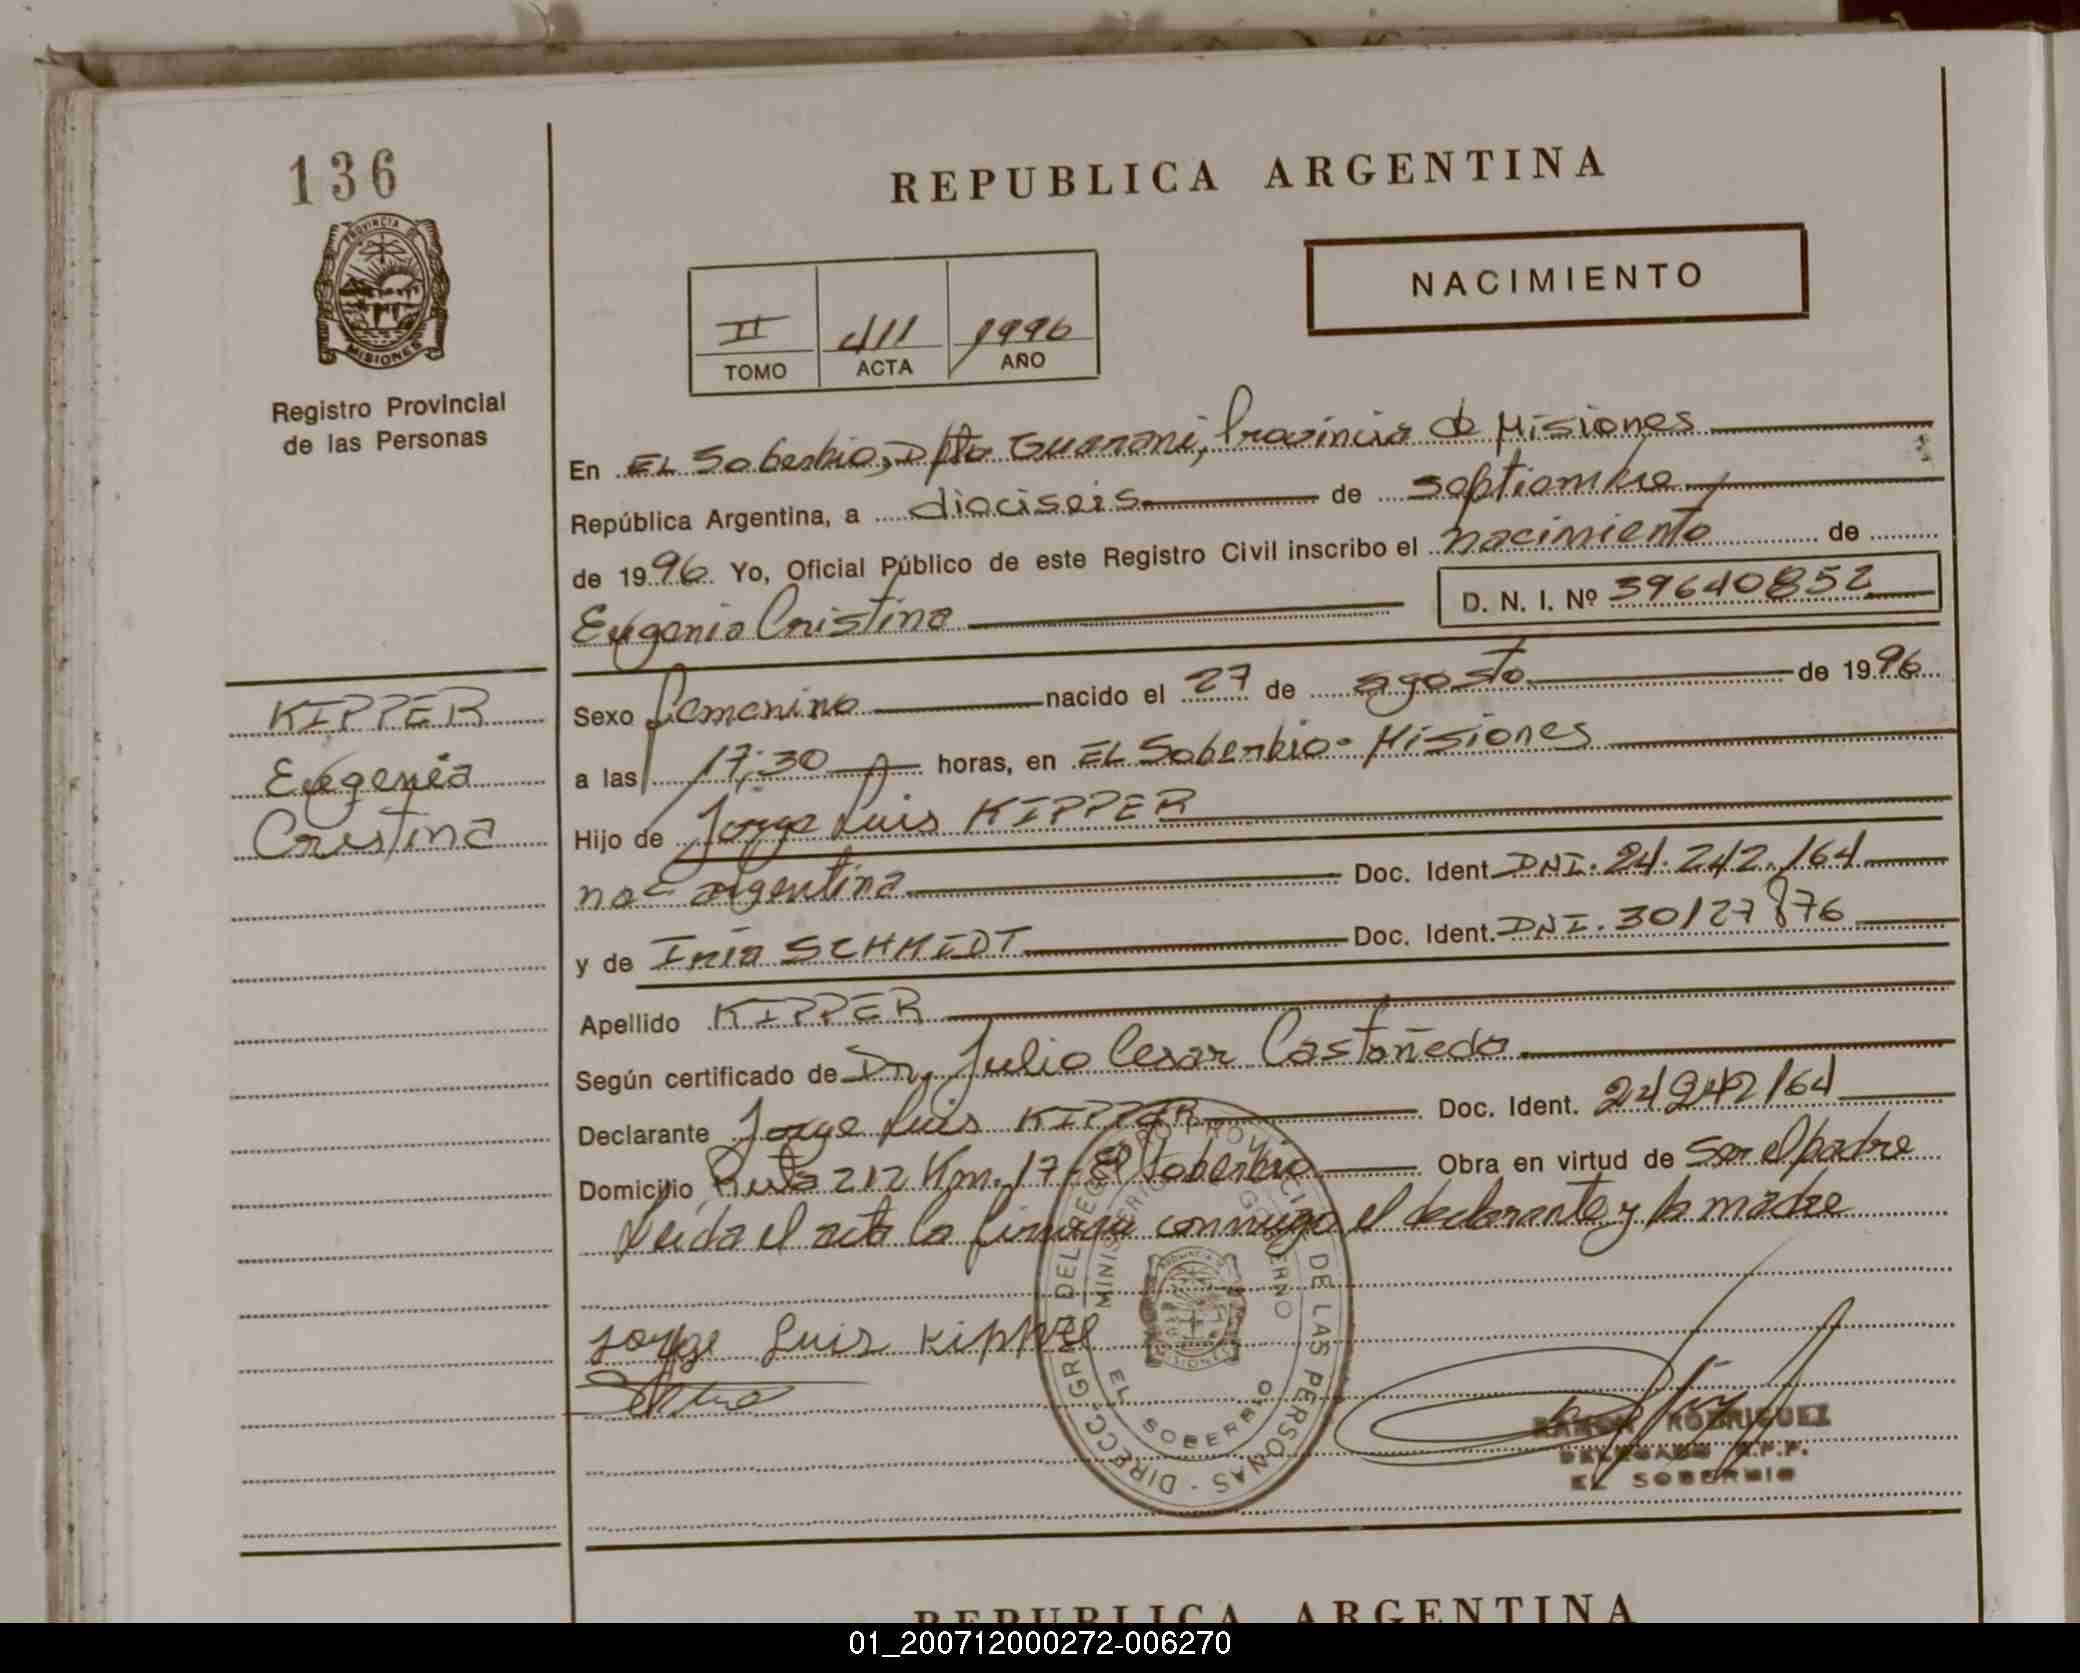 136
REPUBLICA ARGENTINA
PROVINCIA DE
MISIONES
NACIMIENTO
II 411 1996
TOMO ACTA AÑO
Registro Provincial
de las Personas
En EL Soberbio, Dpto Guarani, Provincia de Misiones
República Argentina, a dieciseis de septiembre
de 1996. Yo, Oficial Público de este Registro Civil inscribo el nacimiento de
D. N. I. Nº 39640852
Eugenia Cristina
KIPPER
Eugenia
Cristina
Sexo femenino nacido el 27 de agosto de 1996
a las 17:30 horas, en EL Soberbio - Misiones
Hijo de Jorge Luis KIPPER
nac argentina Doc. Ident. DNI. 24.242.164
y de Iria SCHMIDT Doc. Ident. DNI. 30127876
Apellido KIPPER
Según certificado de Dr. Julio Cesar Castañedo
Declarante Jorge Luis KIPPER Doc. Ident. 24242164
Domicilio Ruta 212 Km. 17 - El Soberbio Obra en virtud de ser el padre
Leida el acta la firman conmigo el declarante y la madre
Jorge Luis Kipper
DIRECC. GRAL. DEL REGISTRO PROVINCIAL DE LAS PERSONAS
MINISTERIO GOBIERNO
EL SOBERBIO
RAMON RODRIGUEZ
DELEGADO R.P.P.
EL SOBERBIO
REPUBLICA ARGENTINA
01_200712000272-006270